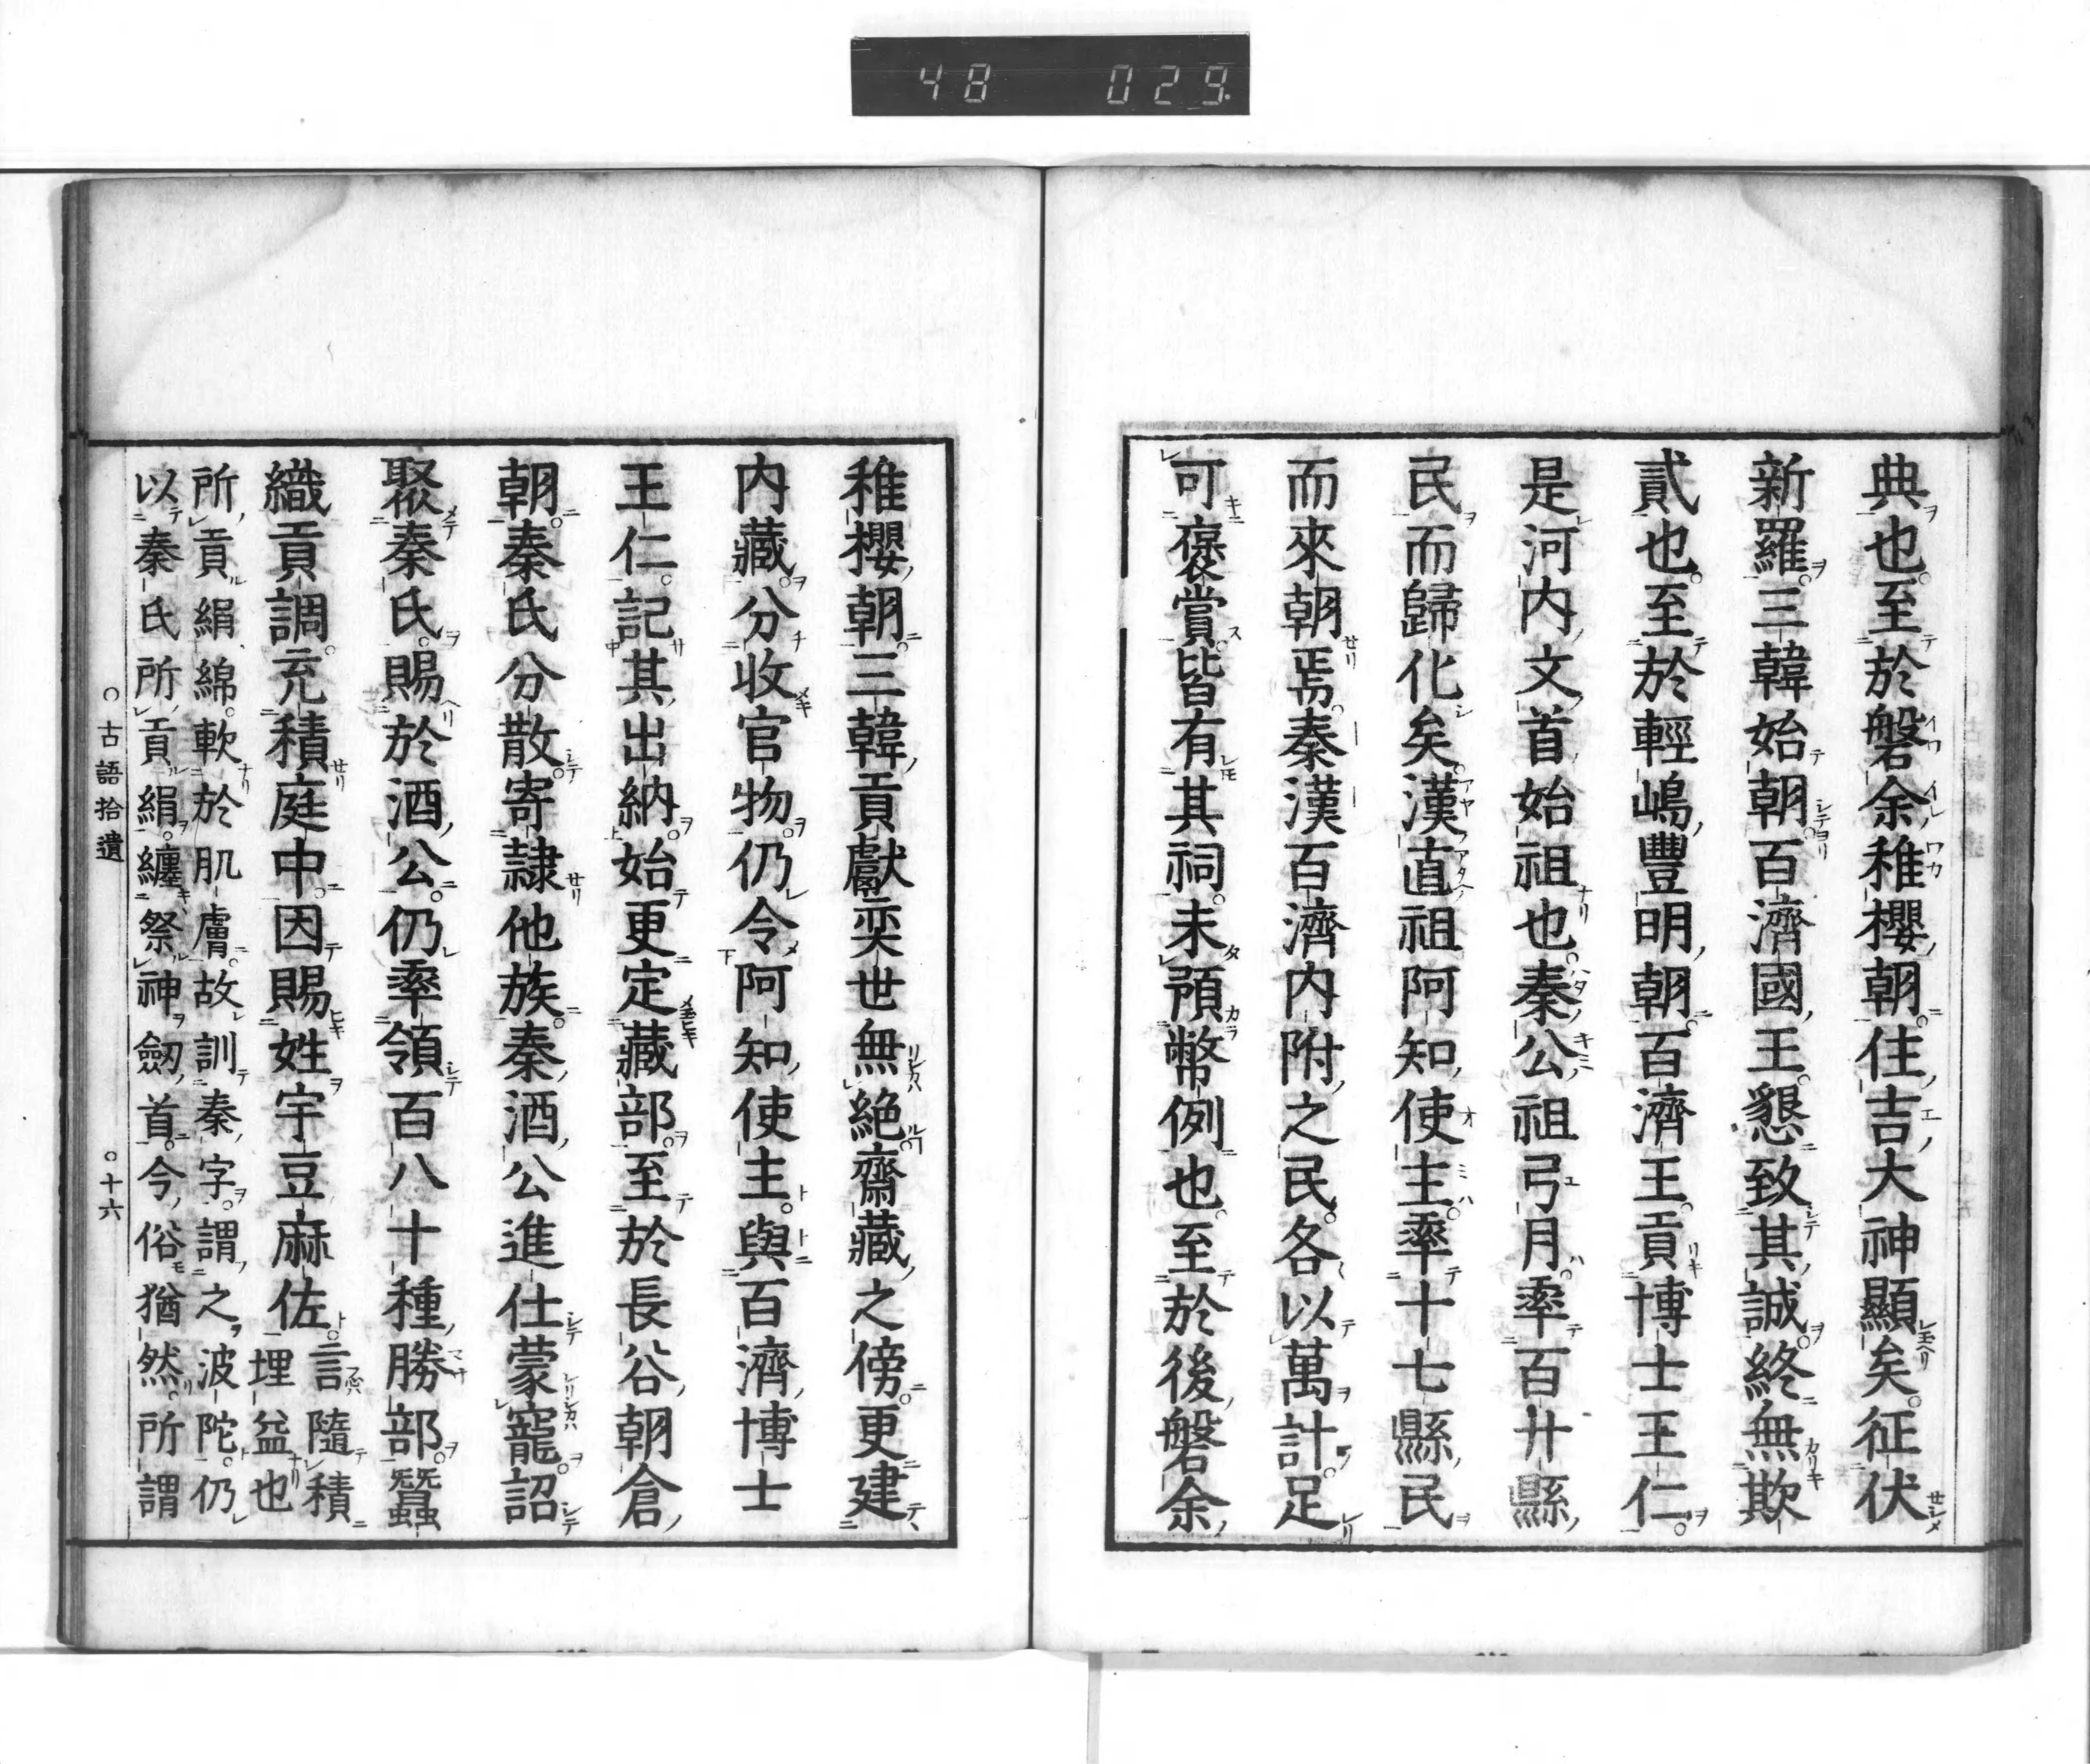 48 029
典也至於磐余稚櫻朝住吉大神顯矣征伏
新羅三韓始朝百濟國王懇致其誠終無欺
貳也至於輕嶋豐明朝百濟王貢博士王仁
是河内文首始祖也秦公祖弓月率百廿縣
民而歸化矣漢直祖阿知使主率十七縣民
而來朝焉秦漢百濟内附之民各以萬計足
可褒賞皆有其祠未預幣例也至於後磐余
稚櫻朝三韓貢獻奕世無絶齋藏之傍更建
内藏分收官物仍令阿知使主與百濟博士
王仁記其出納始更定藏部至於長谷朝倉
朝秦氏分散寄隷他族秦酒公進仕蒙寵詔
聚秦氏賜於酒公仍率領百八十種勝部蠶
織貢調充積庭中因賜姓宇豆麻佐言隨積
埋益也
所貢絹綿軟於肌膚故訓秦字謂之波陀仍
以秦氏所貢絹纏祭神劒首今俗猶然所謂
○古語拾遺 ○十六